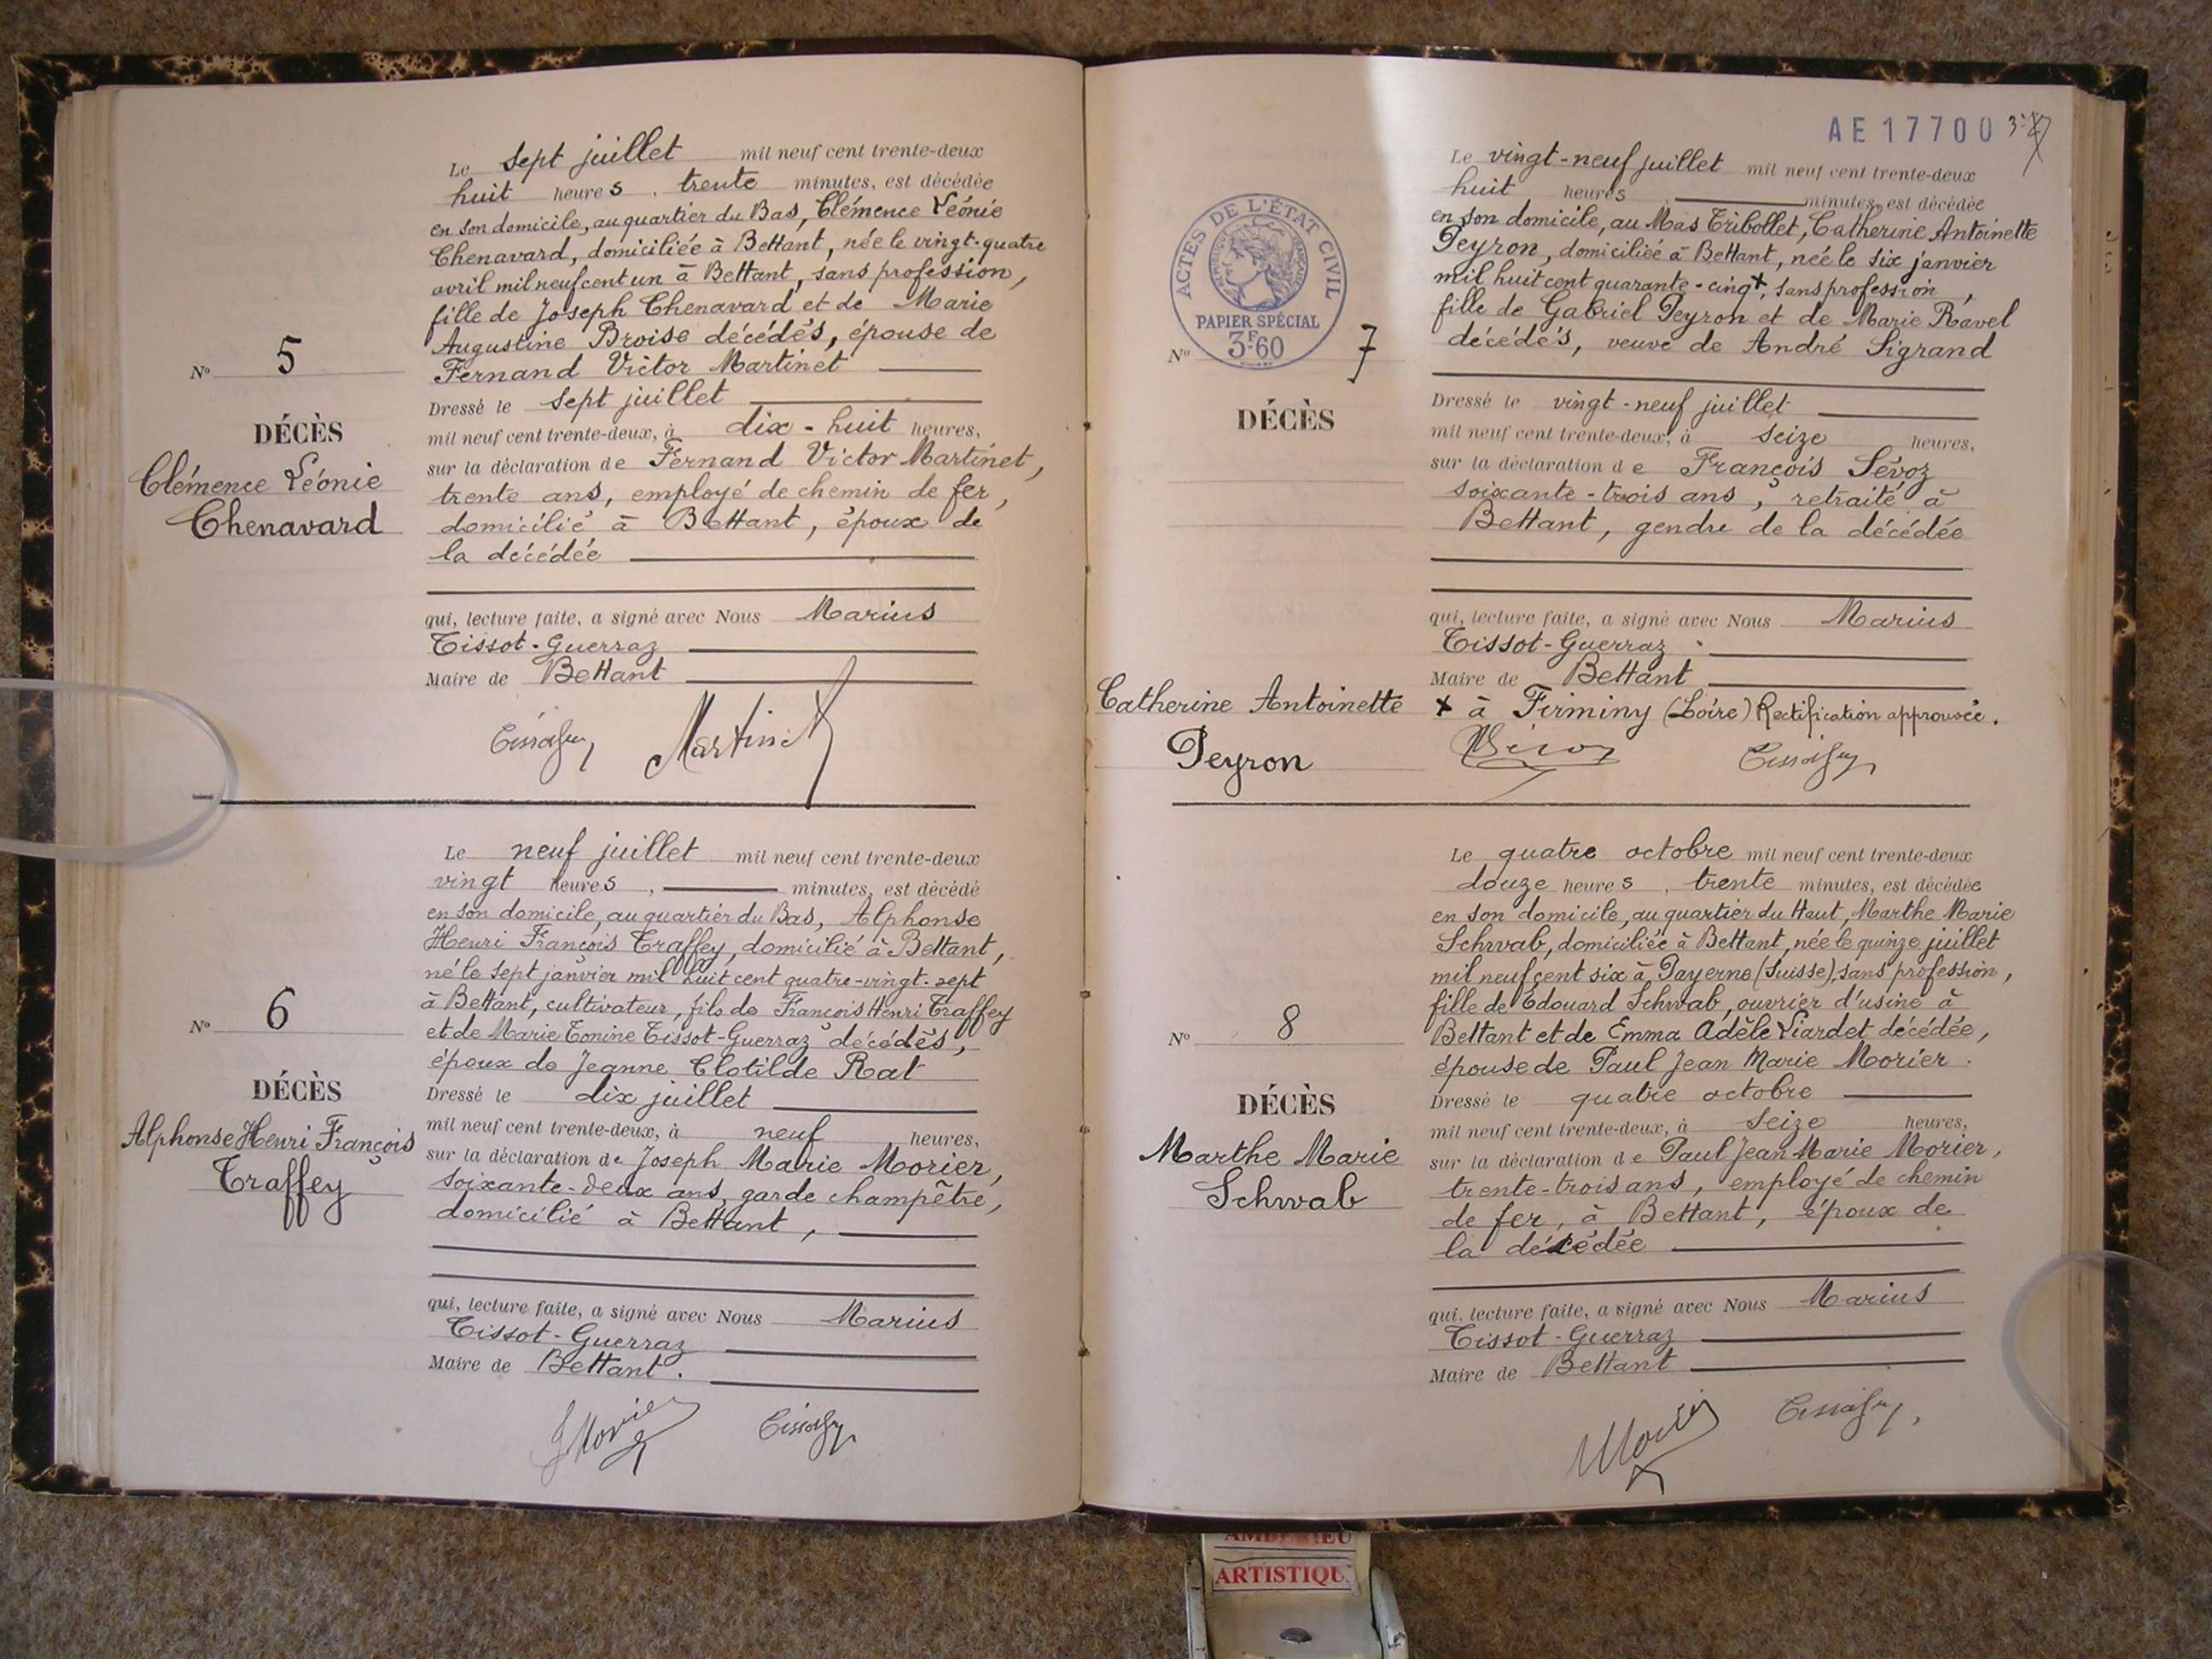 Le sept juillet mil neuf cent trente-deux
huit heures, trente minutes, est décédée
en son domicile, au quartier du Bas, Clémence Léonie
Chenavard, domiciliée à Bettant, née le vingt-quatre
avril mil neuf cent un à Bettant, sans profession,
fille de Joseph Chenavard et de Marie
Augustine Broise décédés, épouse de
Fernand Victor Martinet
Nº 5
DÉCÈS
Clémence Léonie
Chenavard
Dressé le sept juillet
mil neuf cent trente-deux, à dix-huit heures,
sur la déclaration de Fernand Victor Martinet,
trente ans, employé de chemin de fer,
domicilié à Bettant, époux de
la décédée
qui, lecture faite, a signé avec Nous Marius
Tissot-Guerraz
Maire de Bettant
Martinet
Le neuf juillet mil neuf cent trente-deux
vingt heures, minutes, est décédé
en son domicile, au quartier du Bas, Alphonse
Henri François Traffey, domicilié à Bettant,
né le sept janvier mil huit cent quatre-vingt-sept
à Bettant, cultivateur, fils de François Henri Traffey
et de Marie Tonine Tissot-Guerraz décédés,
époux de Jeanne Clotilde Rat
Nº 6
DÉCÈS
Alphonse Henri François
Traffey
Dressé le dix juillet
mil neuf cent trente-deux, à neuf heures,
sur la déclaration de Joseph Marie Morier,
soixante-deux ans, garde champêtre,
domicilié à Bettant,
qui, lecture faite, a signé avec Nous Marius
Tissot-Guerraz
Maire de Bettant.
J Morier
AE 17700
ACTES DE L'ÉTAT CIVIL
RÉPUBLIQUE FRANÇAISE
PAPIER SPÉCIAL
3F60
Le vingt-neuf juillet mil neuf cent trente-deux
huit heures, minutes, est décédée
en son domicile, au Mas Tribollet, Catherine Antoinette
Peyron, domiciliée à Bettant, née le six janvier
mil huit cent quarante-cinq+, sans profession,
fille de Gabriel Peyron et de Marie Ravel
décédés, veuve de André Sigrand
Nº 7
DÉCÈS
Catherine Antoinette
Peyron
Dressé le vingt-neuf juillet
mil neuf cent trente-deux, à seize heures,
sur la déclaration de François Sévoz
soixante-trois ans, retraité à
Bettant, gendre de la décédée
qui, lecture faite, a signé avec Nous Marius
Tissot-Guerraz
Maire de Bettant
+ à Firminy (Loire) Rectification approuvée.
Le quatre octobre mil neuf cent trente-deux
douze heures, trente minutes, est décédée
en son domicile, au quartier du Haut, Marthe Marie
Schwab, domiciliée à Bettant, née le quinze juillet
mil neuf cent six à Payerne (Suisse), sans profession,
fille de Edouard Schwab, ouvrier d'usine à
Bettant et de Emma Adèle Liardet décédée,
épouse de Paul Jean Marie Morier.
Nº 8
DÉCÈS
Marthe Marie
Schwab
Dressé le quatre octobre
mil neuf cent trente-deux, à seize heures,
sur la déclaration de Paul Jean Marie Morier,
trente-trois ans, employé de chemin
de fer, à Bettant, époux de
la décédée
qui, lecture faite, a signé avec Nous Marius
Tissot-Guerraz
Maire de Bettant
Morier
AMBERIEU
ARTISTIQU